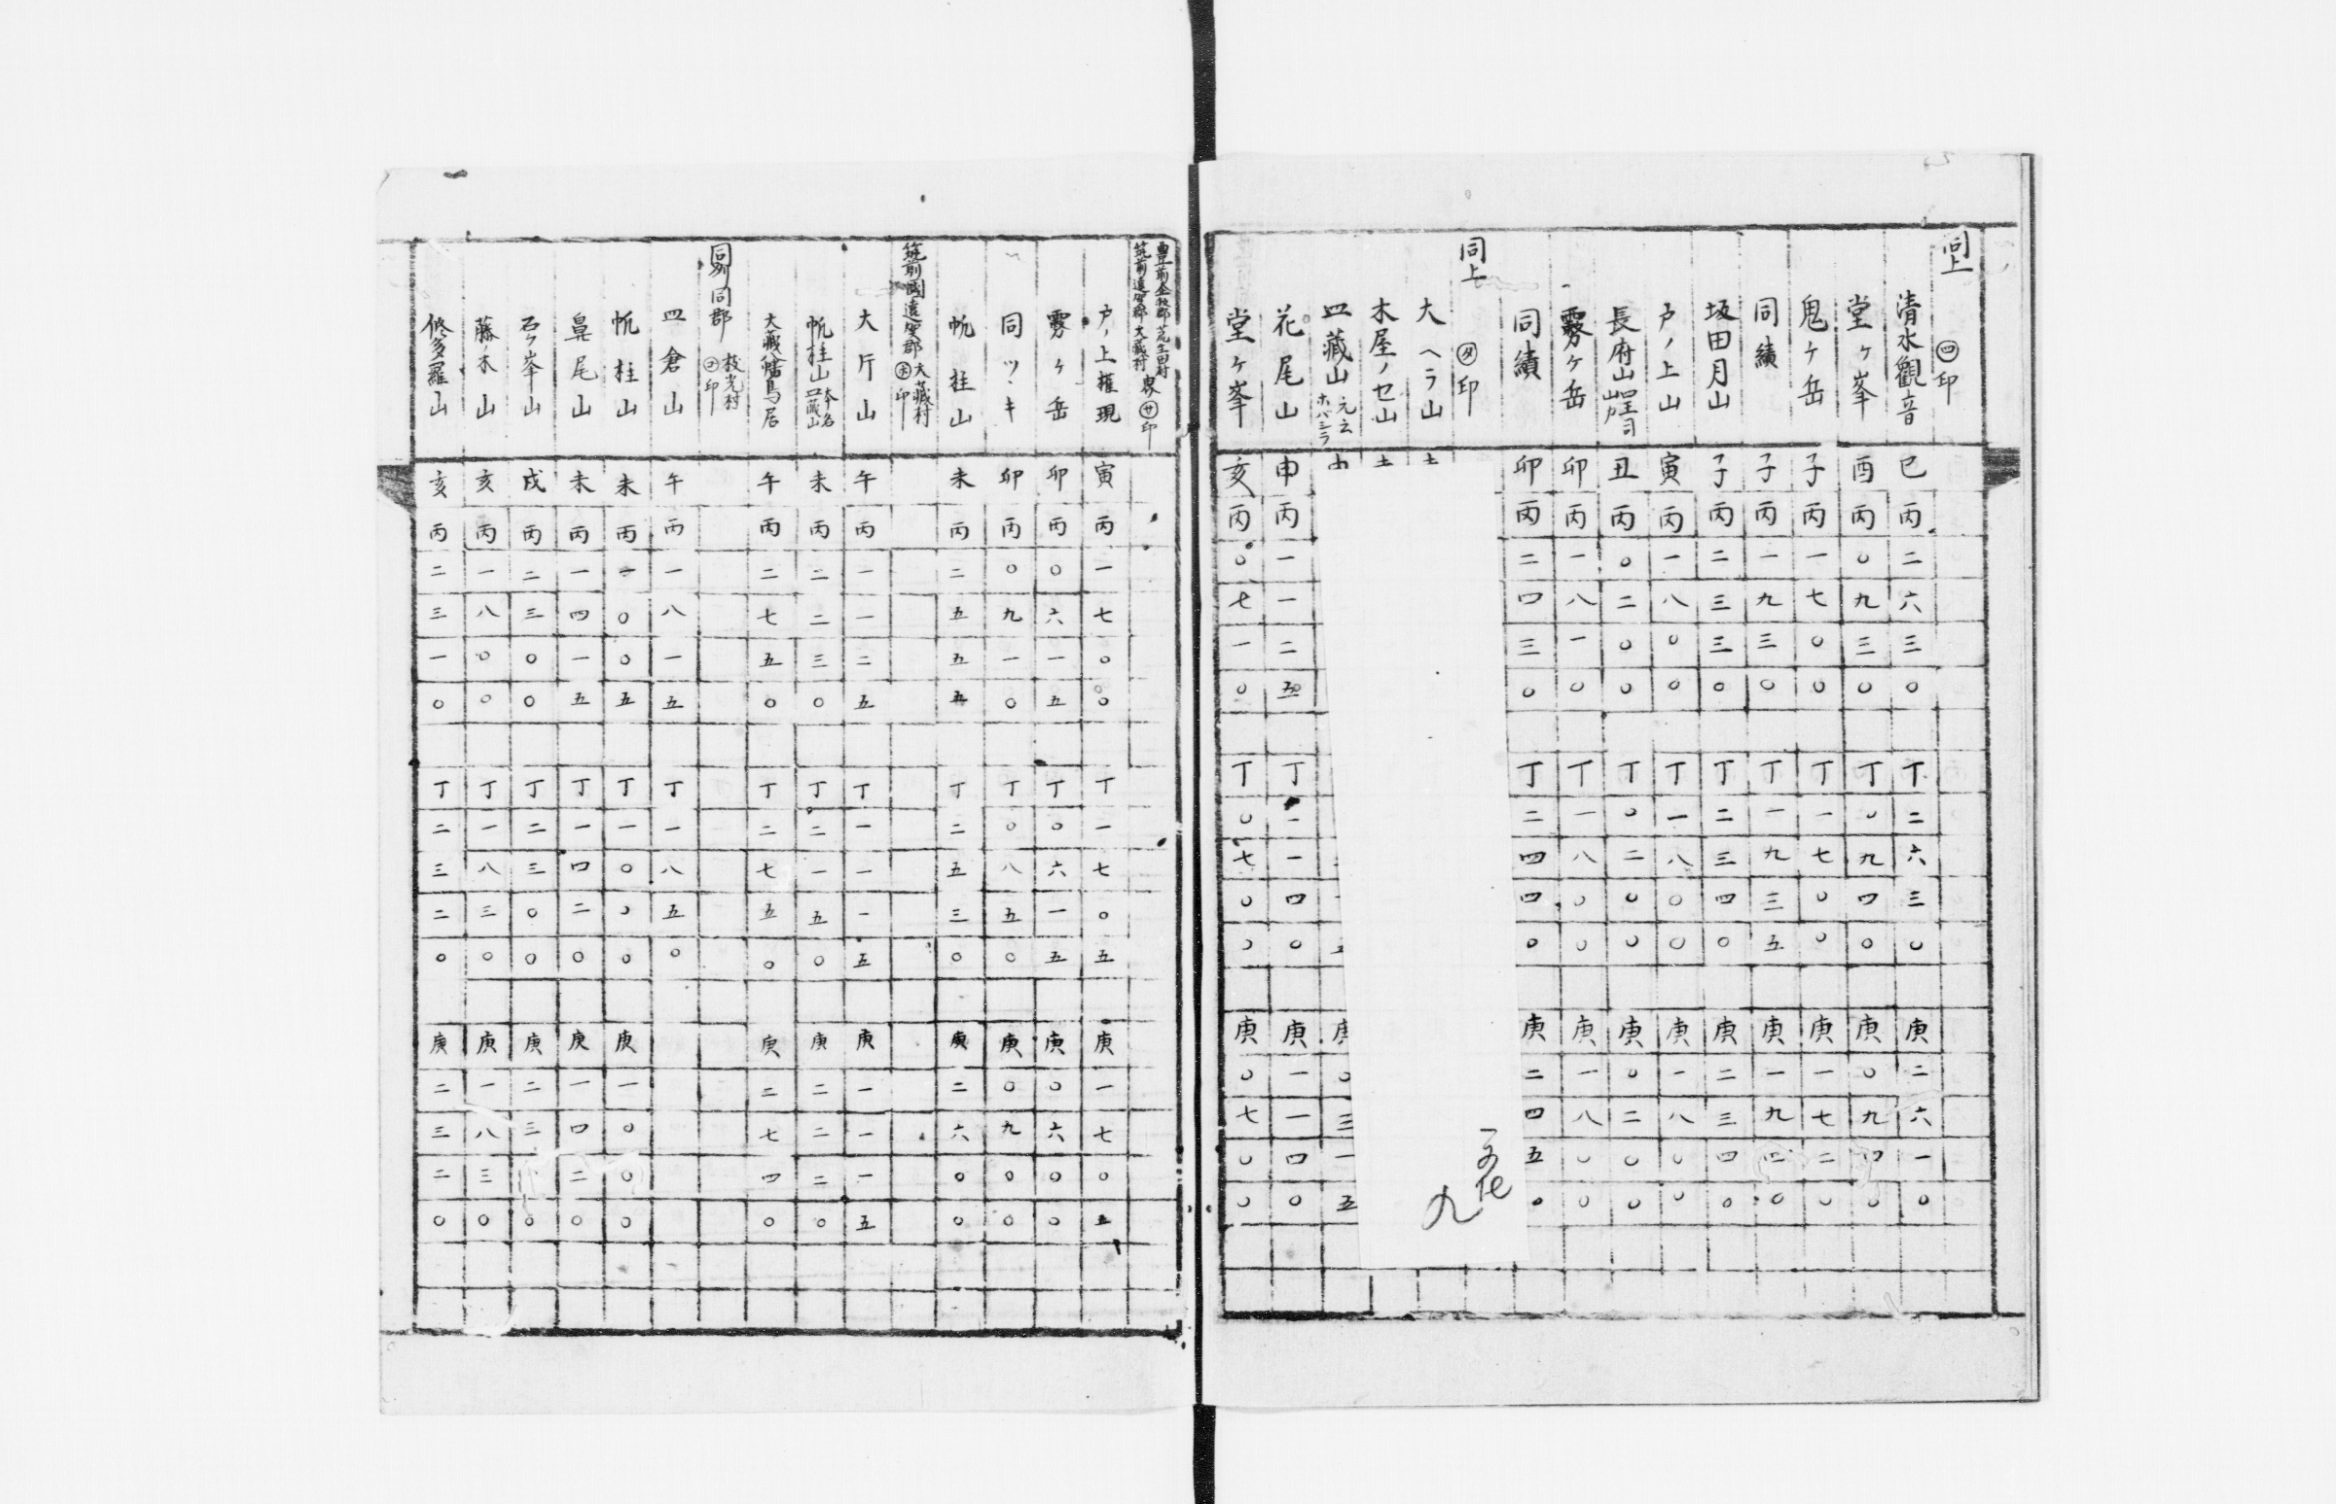 同上 ㊃印
清水觀音 巳 丙 二 六 三 〇 丁 二 六 三 〇 庚 二 六 一 〇
堂ヶ峯 酉 丙 〇 九 三 〇 丁 〇 九 四 〇 庚 〇 九 四 〇
鬼ヶ岳 子 丙 一 七 〇 〇 丁 一 七 〇 〇 庚 一 七 二 〇
同績 子 丙 一 九 三 〇 丁 一 九 三 五 庚 一 九 四 〇
坂田月山 子 丙 二 三 三 〇 丁 二 三 四 〇 庚 二 三 四 〇
戸ノ上山 寅 丙 一 八 〇 〇 丁 一 八 〇 〇 庚 一 八 〇 〇
長府山 丑 丙 〇 二 〇 〇 丁 〇 二 〇 〇 庚 〇 二 〇 〇
霧ヶ岳 卯 丙 一 八 一 〇 丁 一 八 〇 〇 庚 一 八 〇 〇
同績 卯 丙 二 四 三 〇 丁 二 四 四 〇 庚 二 四 五 〇
同上 ㋟印
大ヘラ山
木屋ノセ山
皿藏山 元云ホバシラ 五 〇 三 一 五
花尾山 申 丙 一 一 二 五 丁 一 一 四 〇 庚 一 一 四 〇
堂ヶ峯 亥 丙 〇 七 一 〇 丁 〇 七 〇 〇 庚 〇 七 〇 〇
九
筑前遠賀郡大藏村 ㋚印
戸ノ上權現 寅 丙 一 七 〇 〇 丁 一 七 〇 五 庚 一 七 〇 五
霧ヶ岳 卯 丙 〇 六 一 五 丁 〇 六 一 五 庚 〇 六 〇 〇
同ツヾキ 卯 丙 〇 九 一 〇 丁 〇 八 五 〇 庚 〇 九 〇 〇
帆柱山 未 丙 二 五 五 五 丁 二 五 三 〇 庚 二 六 〇 〇
筑前國遠賀郡大藏村 印
大斤山 午 丙 一 一 二 五 丁 一 一 一 五 庚 一 一 一 五
帆柱山 本名皿藏山 未 丙 二 二 三 〇 丁 二 一 五 〇 庚 二 二 二 〇
大藏八幡鳥居 午 丙 二 七 五 〇 丁 二 七 五 〇 庚 二 七 四 〇
同郡 枝光村 印
皿倉山 午 丙 一 八 一 五 丁 一 八 五 〇
帆柱山 未 丙 一 〇 〇 五 丁 一 〇 〇 〇 庚 一 〇 〇 〇
鼻尾山 未 丙 一 四 一 五 丁 一 四 二 〇 庚 一 四 二 〇
石ヶ峯山 戌 丙 二 三 〇 〇 丁 二 三 〇 〇 庚 二 三 〇
藤木山 亥 丙 一 八 〇 〇 丁 一 八 三 〇 庚 一 八 三 〇
修多羅山 亥 丙 二 三 一 〇 丁 二 三 二 〇 庚 二 三 二 〇